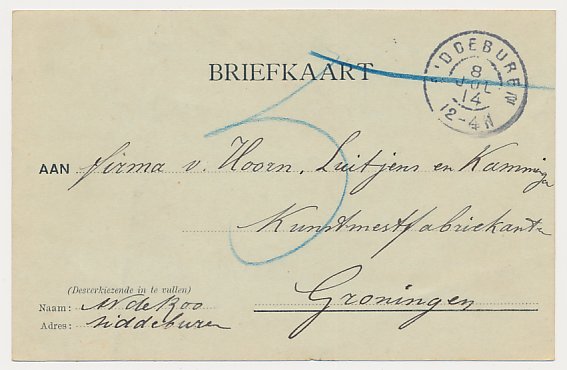 BRIEFKAART
DDEBUREN
8
JUL
14
12-4N
5
AAN firma v. Hoorn, Luitjens en Kamminga
Kunstmestfabriekanten
Groningen
(Desverkiezende in te vullen)
Naam: de Boo
Adres: Siddeburen